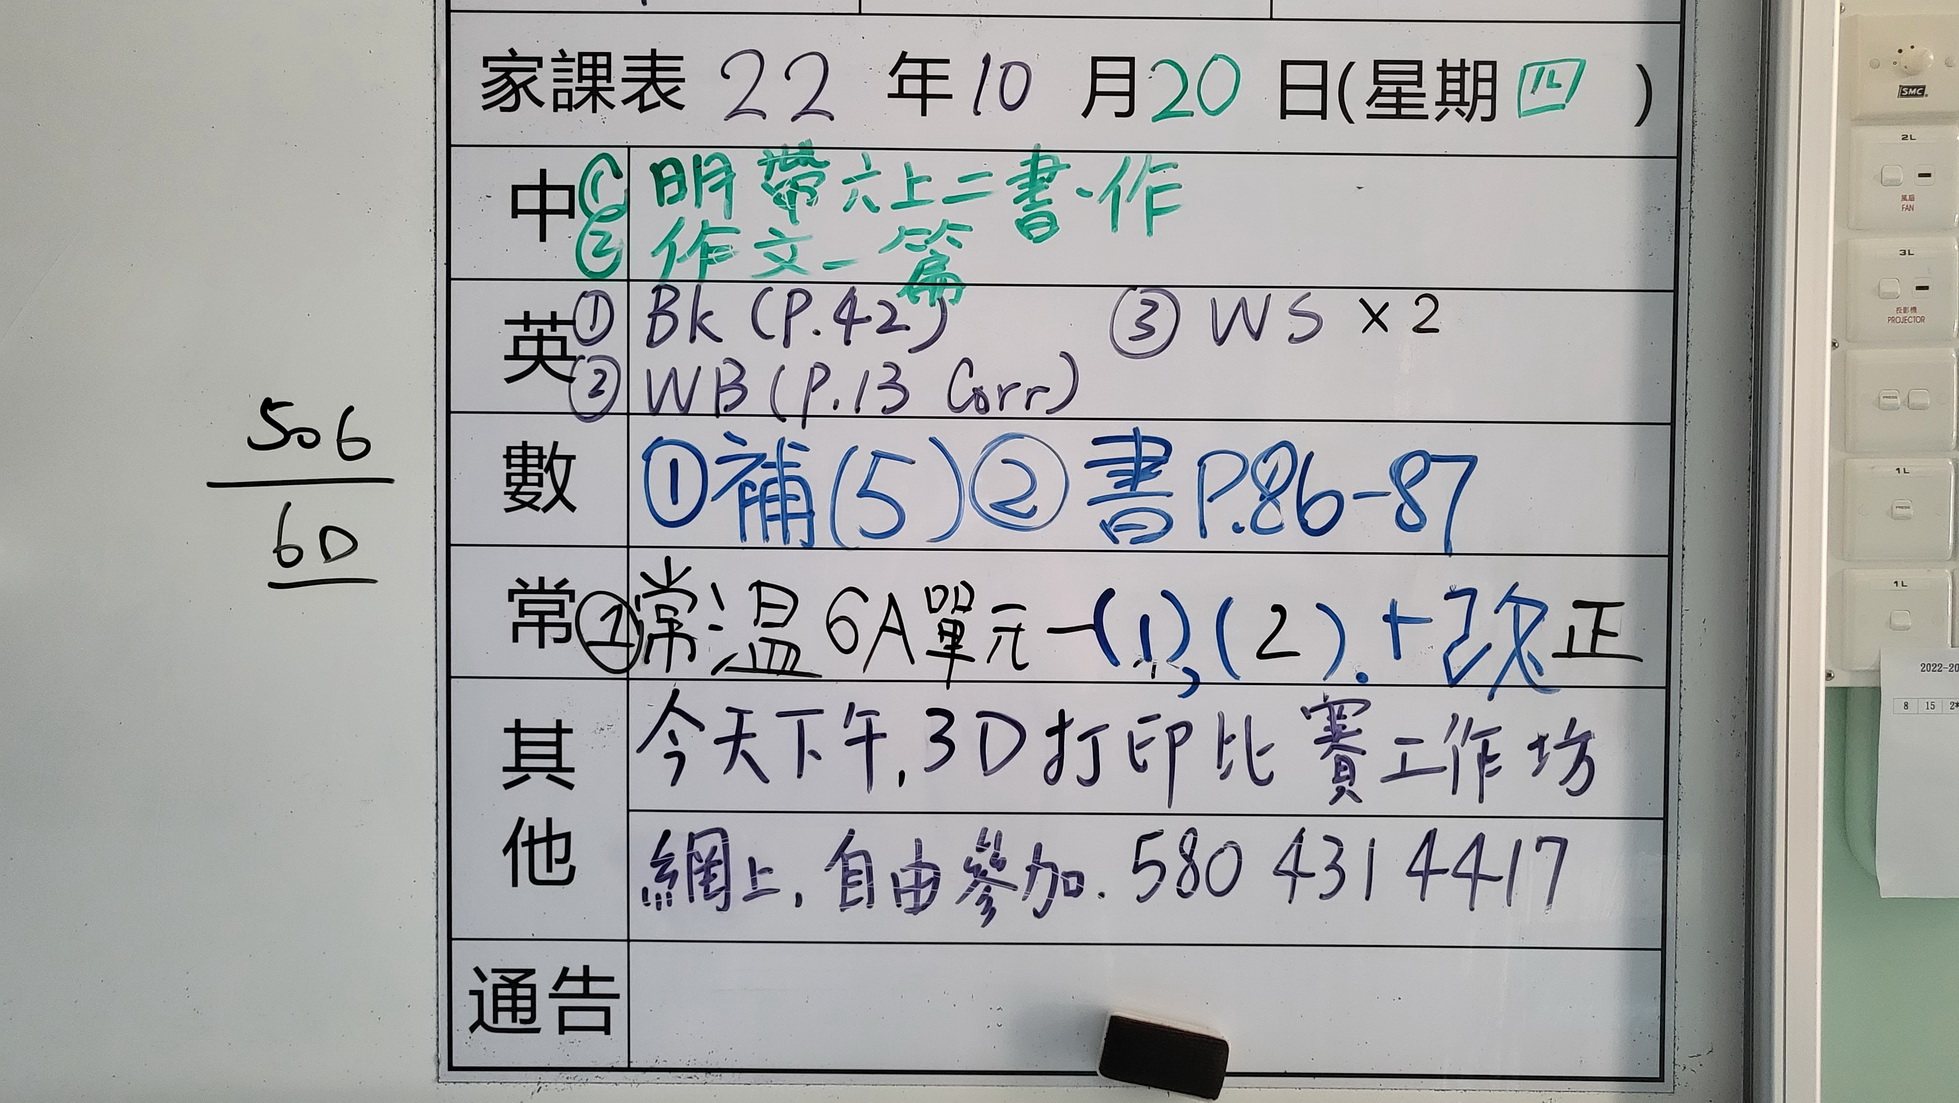 家課表 22 年 10 月 20 日(星期 四 )
中 ① 明帶六上二書、作
② 作文一篇
英 ① Bk (P.42) ③ WS × 2
② WB (P.13 Corr)
數 ①補(5) ② 書P.86-87
常 ① 常温 6A單元一(1),(2).+改正
其他 今天下午,3D打印比賽工作坊
網上,自由參加. 580 431 4417
通告
506
6D
SMC
2L
風扇
FAN
3L
投影機
PROJECTOR
1L
1L
2022-20
8 15 2*